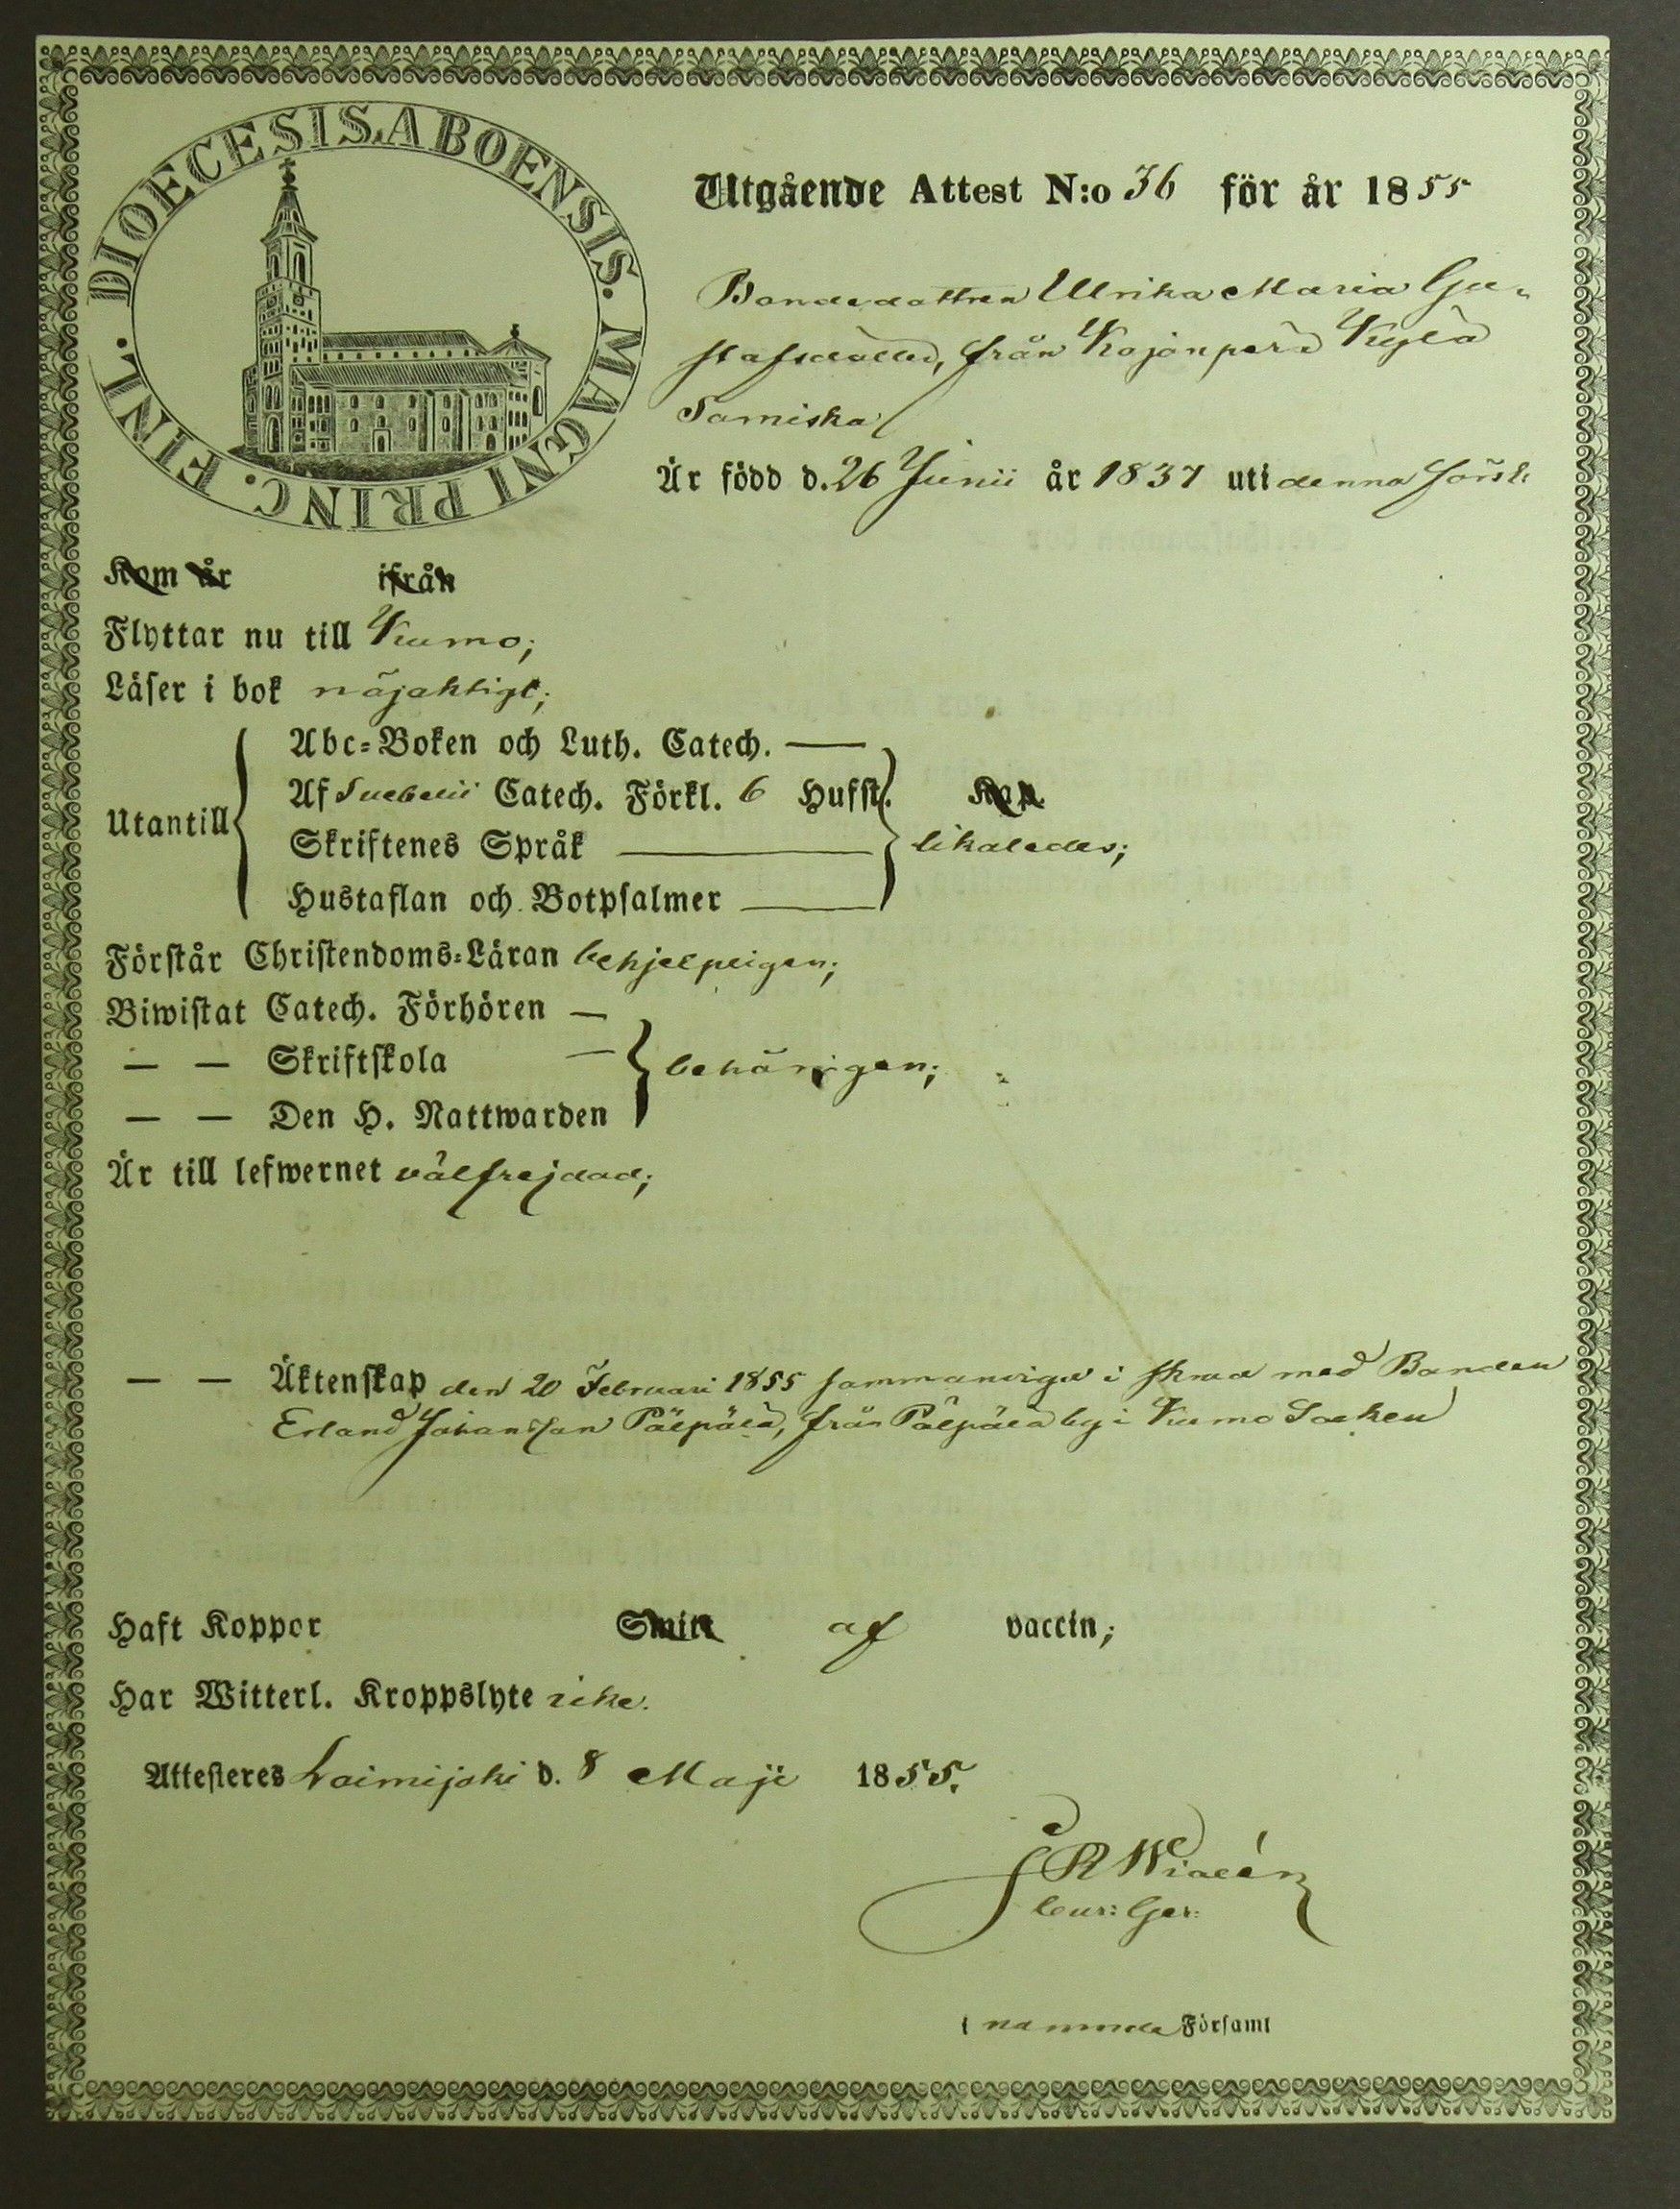 DIOECESIS ABOENSIS. MAGNI PRINC. FINL.
Utgående Attest N:o 36 för år 1855
Bondedottren Ulrika Maria Gu-
stafsdotter, från Kojonperä Kylä
Samiska
Är född d. 26 Junii år 1837 uti denna förs:
Kom år ifrån
Flyttar nu till Kumo;
Läser i bok nöjaktigt;
Utantill
Abc-Boken och Luth. Catech. —
Af Svebelii Catech. Förkl. 6 Hufst. Kap.
Skriftenes Språk —
likaledes;
Hustaflan och Botpsalmer —
Förstår Christendoms-Läran behjelpligen;
Biwistat Catech. Förhören —
— — Skriftskola — behörigen;
— — Den H. Nattwarden
Är till lefwernet välfrejdad;
— — Äktenskap den 20 Februari 1855 sammanvigd i med Bonden
Erland Johansson Pälpälä, från Pälpälä by i Kumo Socken
Haft Koppor Smitt af vaccin;
Har Witterl. Kroppslyte icke.
Attesteres Loimijoki d. 8 Maji 1855.
Cur: Ger:
i nämnde Församl